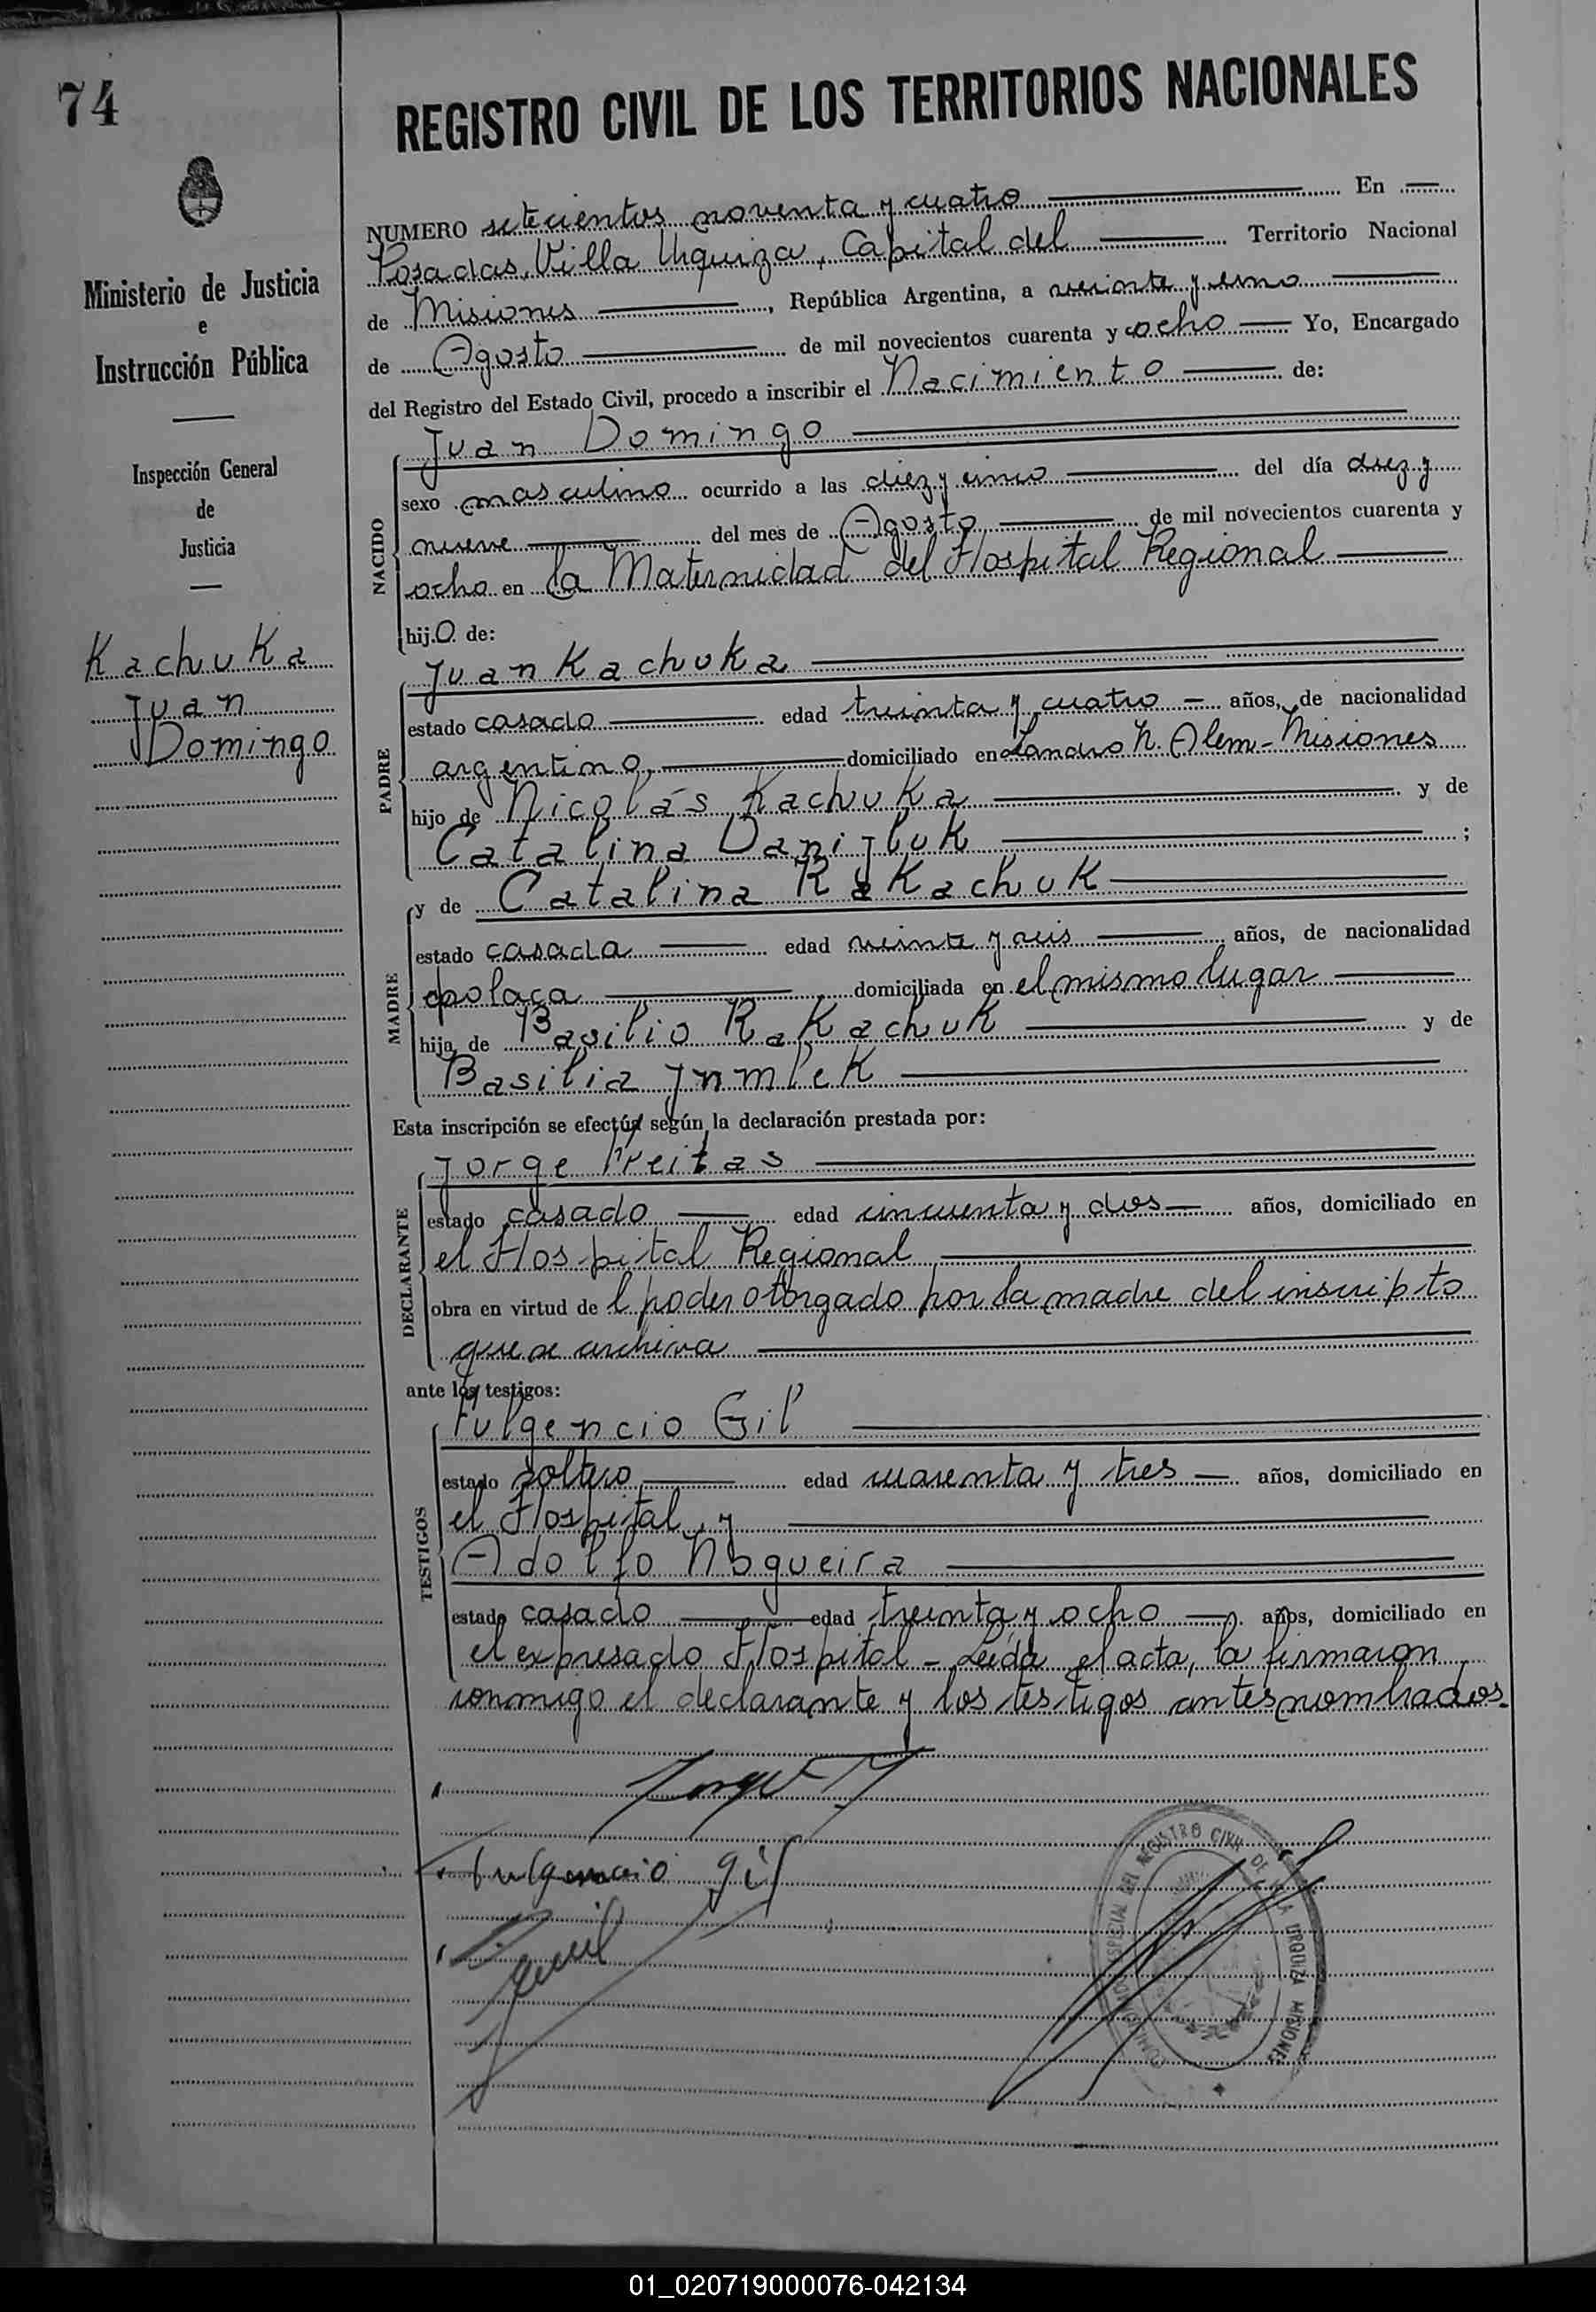 74
REGISTRO CIVIL DE LOS TERRITORIOS NACIONALES
Ministerio de Justicia
e
Instrucción Pública
Inspección General
de
Justicia
Kachuka
Juan
Domingo
NUMERO setecientos noventa y cuatro En
Posadas, Villa Urquiza, Capital del Territorio Nacional
de Misiones, República Argentina, a veinte y uno
de Agosto de mil novecientos cuarenta y ocho Yo, Encargado
del Registro del Estado Civil, procedo a inscribir el Nacimiento de:
NACIDO
Juan Domingo
sexo masculino ocurrido a las diez y cinco del día diez y
nueve del mes de Agosto de mil novecientos cuarenta y
ocho en la Maternidad del Hospital Regional
hijo de:
PADRE
Juan Kachuka
estado casado edad treinta y cuatro años, de nacionalidad
argentino domiciliado en Leandro N. Alem-Misiones
hijo de Nicolás Kachuka y de
Catalina Danijluk ;
MADRE
y de Catalina Rakachuk
estado casada edad veinte y seis años, de nacionalidad
polaca domiciliada en el mismo lugar
hija de Basilio Rakachuk y de
Basilia
Esta inscripción se efectúa según la declaración prestada por:
DECLARANTE
Jorge Freitas
estado casado edad cincuenta y dos años, domiciliado en
el Hospital Regional
obra en virtud del poder otorgado por la madre del inscripto
que se archiva
ante los testigos:
TESTIGOS
Fulgencio Gil
estado soltero edad cuarenta y tres años, domiciliado en
el Hospital y
Adolfo Nogueira
estado casado edad treinta y ocho años, domiciliado en
el expresado Hospital - Leída el acta, la firmaron
conmigo el declarante y los testigos antes nombrados.
Fulgencio gil
ESPECIAL DEL REGISTRO CIVIL DE VILLA URQUIZA MISIONES
01_020719000076-042134